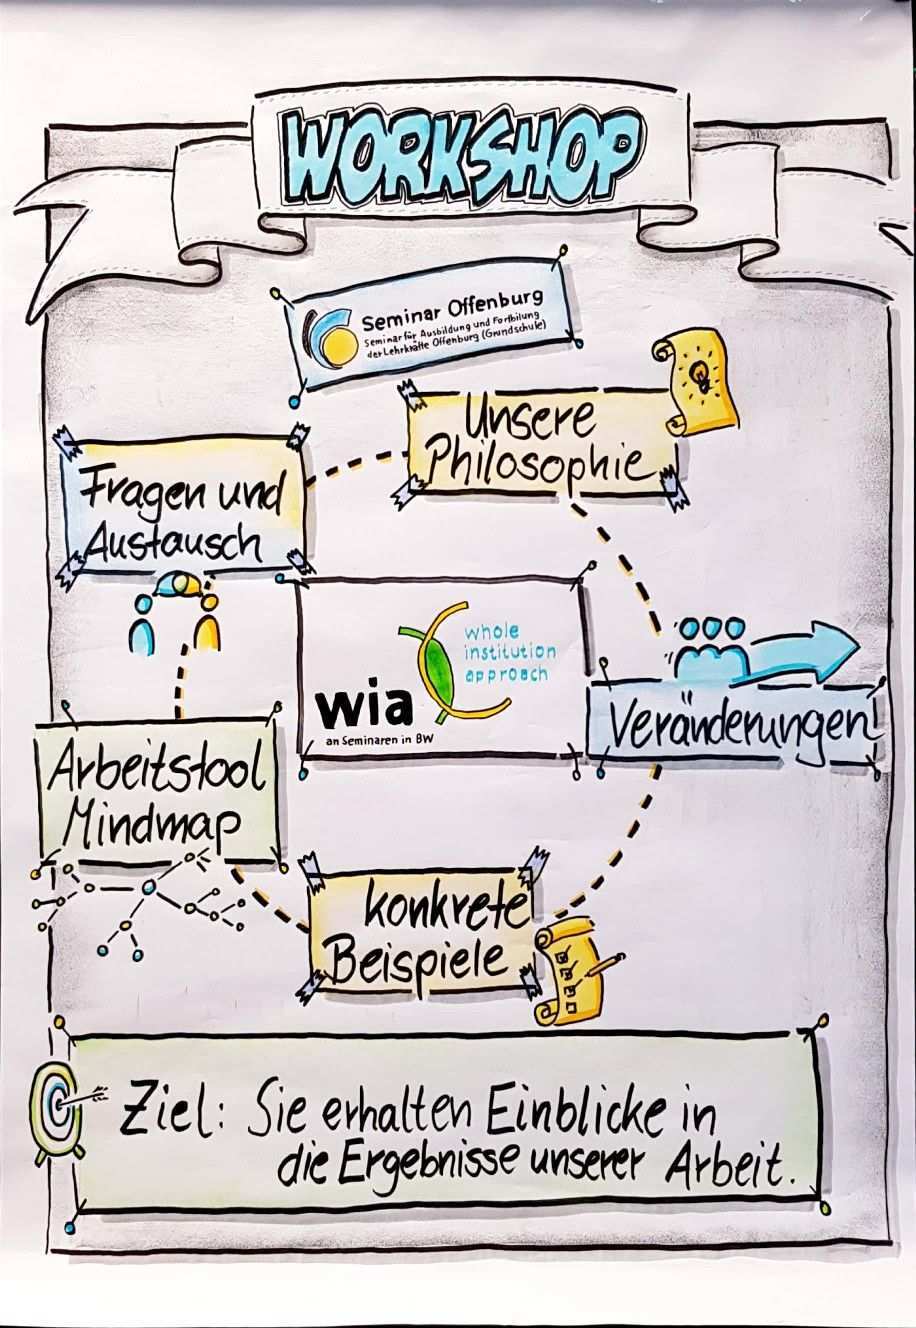 WORKSHOP
Seminar Offenburg
Seminar für Ausbildung und Fortbilung
der Lehrkräfte Offenburg (Grundschule)
Unsere
Philosophie
Fragen und
Austausch
whole
institution
approach
wia
an Seminaren in BW
Veränderungen
Arbeitstool
Mindmap
konkrete
Beispiele
Ziel: Sie erhalten Einblicke in
die Ergebnisse unserer Arbeit.